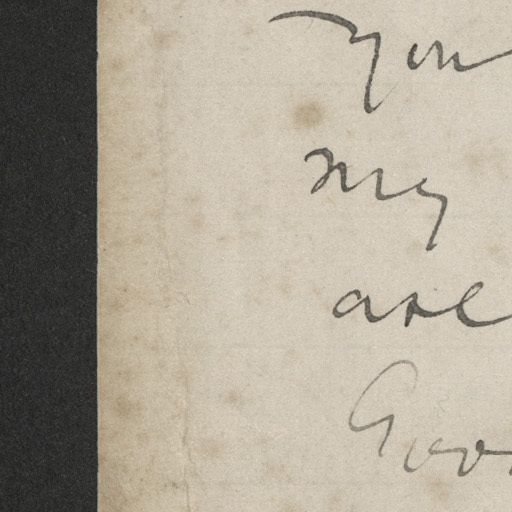 you
my
are
Goo